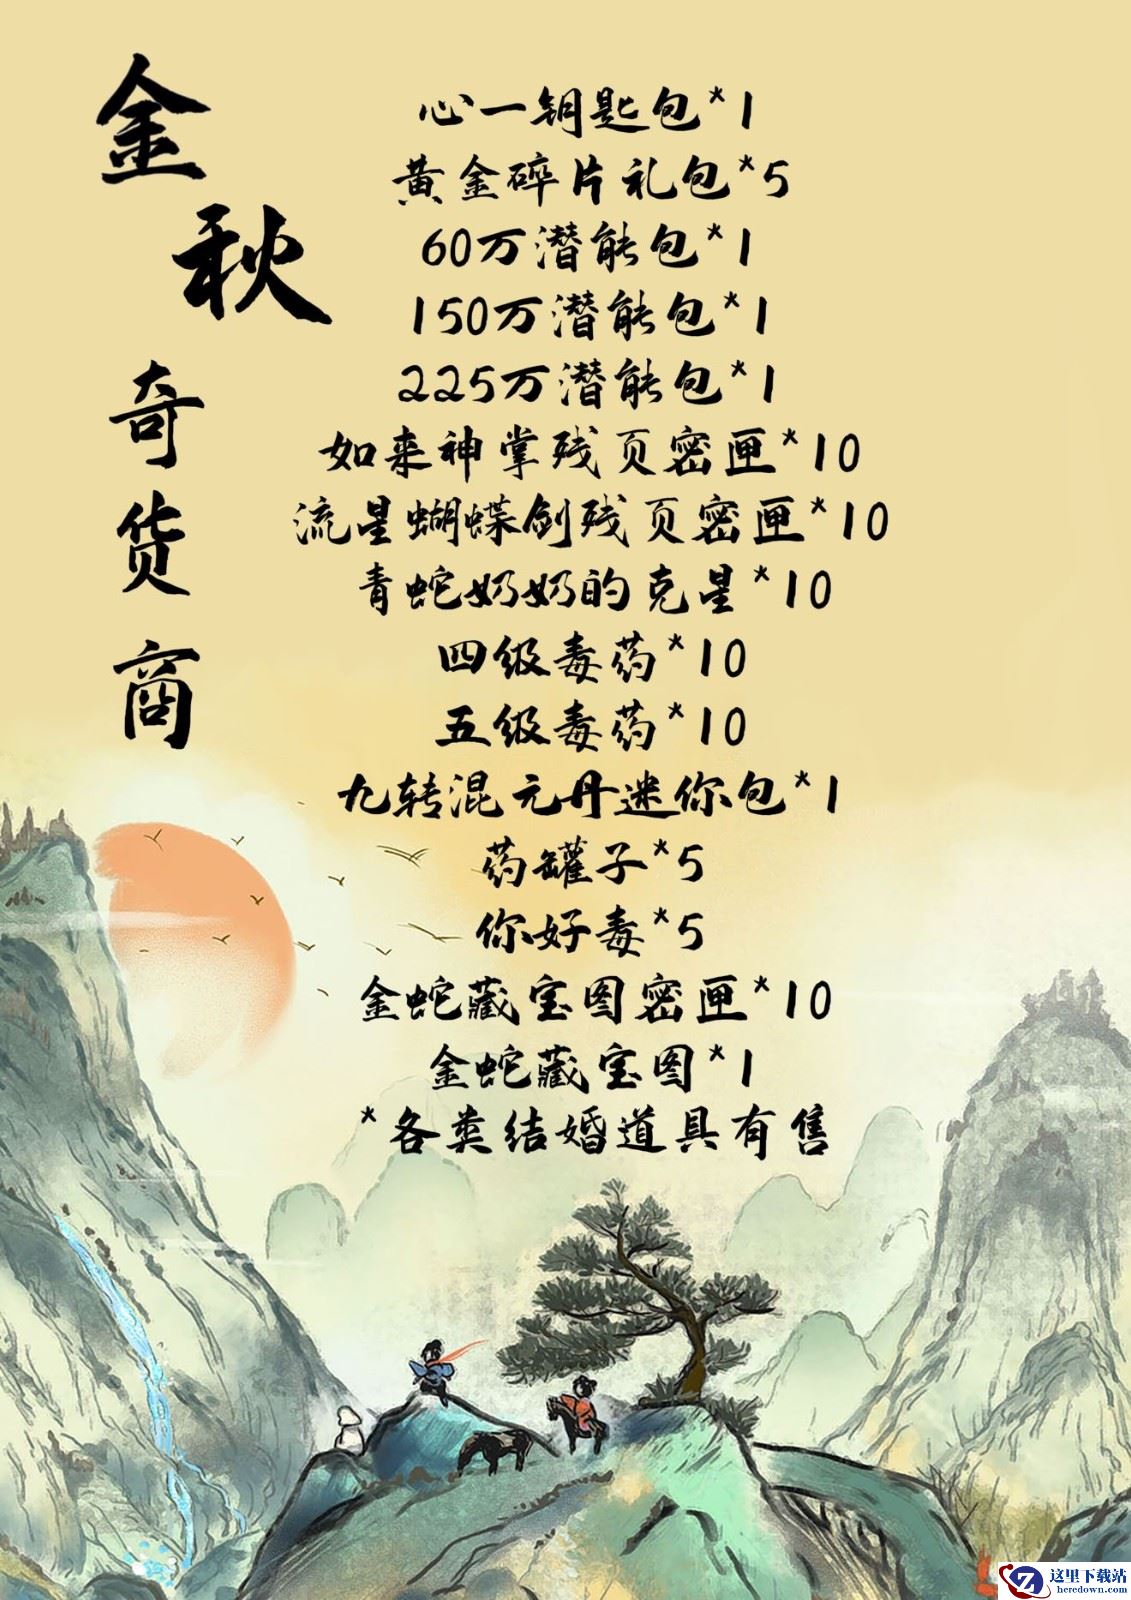 金秋
奇货商
心一钥匙包*1
黄金碎片礼包*5
60万潜能包*1
150万潜能包*1
225万潜能包*1
如来神掌残页密匣*10
流星蝴蝶剑残页密匣*10
青蛇奶奶的克星*10
四级毒药*10
五级毒药*10
九转混元丹迷你包*1
药罐子*5
你好毒*5
金蛇藏宝图密匣*10
金蛇藏宝图*1
*各类结婚道具有售
这里下载站
heredown.com